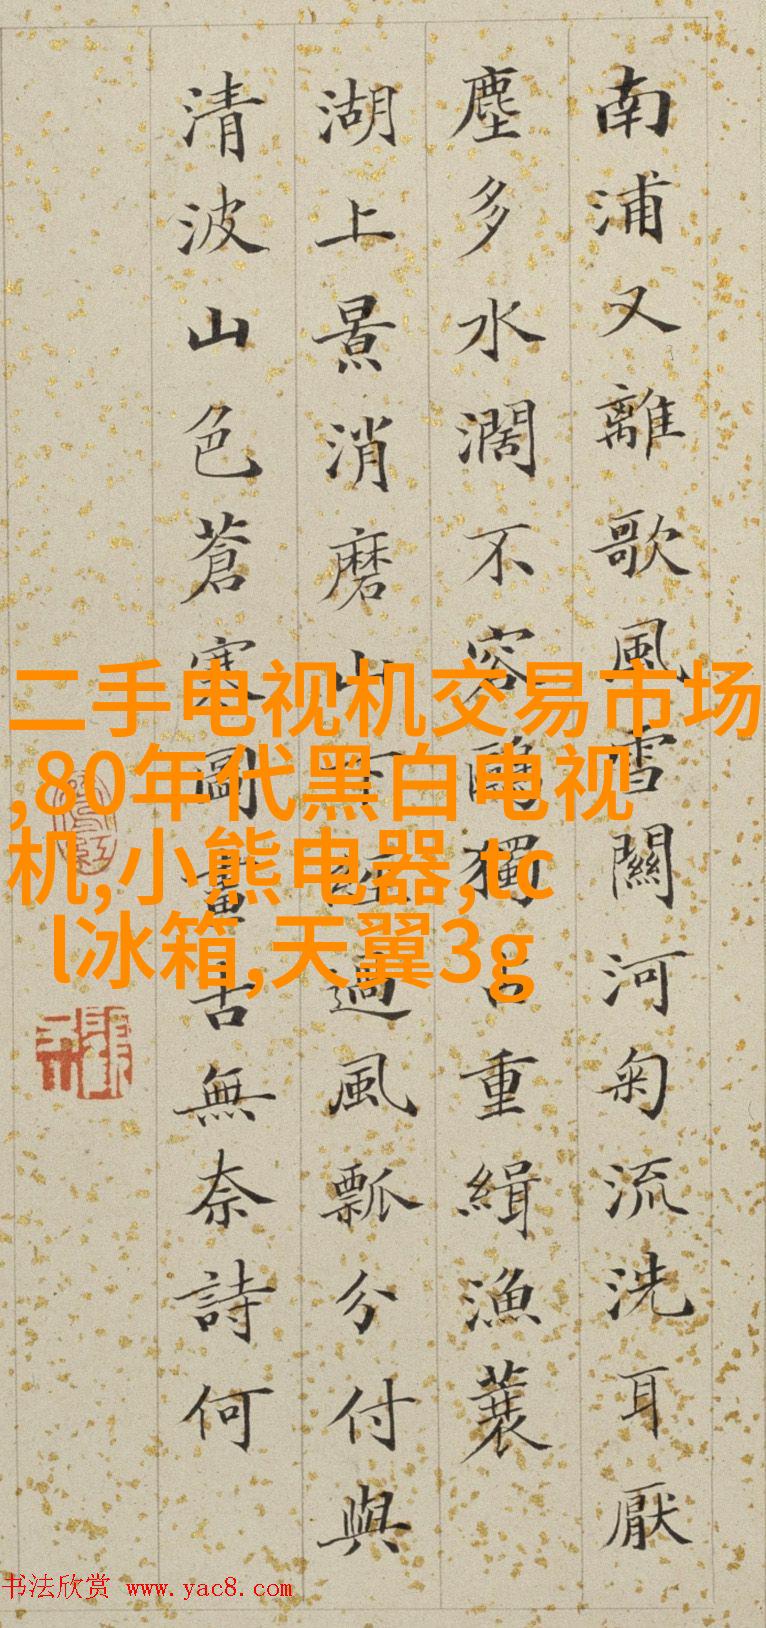 南浦又離歌風雪關河匊流洗耳厭
塵多水濶不容鷗獨占重緝漁蓑
湖上景消磨山下經過風瓢分付與
清波山色蒼寒圖畫古無奈詩何
二手电视机交易市场
,80年代黑白电视
机,小熊电器,tc
l冰箱,天翼3g
书法欣赏 www.yac8.com